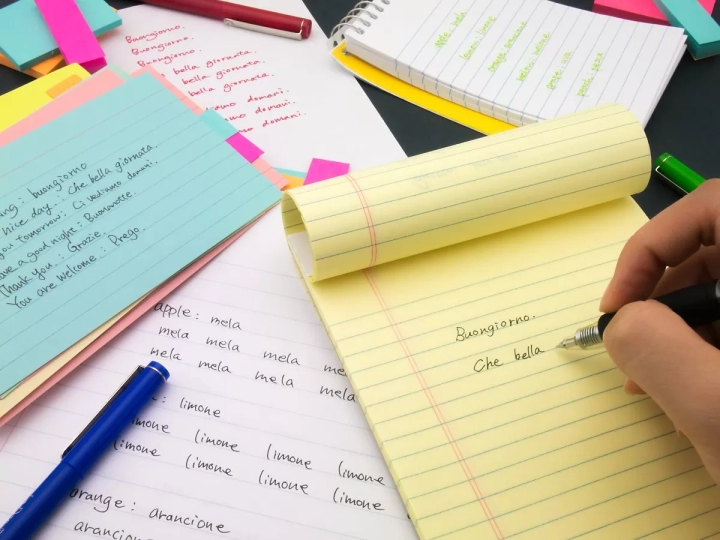 Buongiorno.
Buongiorno.
Buongiorno.
bella giornata.
bella giornata.
bella giornata.
amo domani.
amo domani.
domani.
lemon: limone
orange: arancione
melon: melone
grape: uva
peach: pesca
ng : buongiorno
nice day. : Che bella giornata.
you tomorrow: Ci vediamo domani.
ave a good night: Buonanotte.
Thank you. : Grazie.
You are welcome. : Prego.
apple: mela
mela mela mela me
mela mela mela mela
: limone
imone limone limone limone
limone limone limone limone
orange: arancione
arancion
Buongiorno.
Che bella